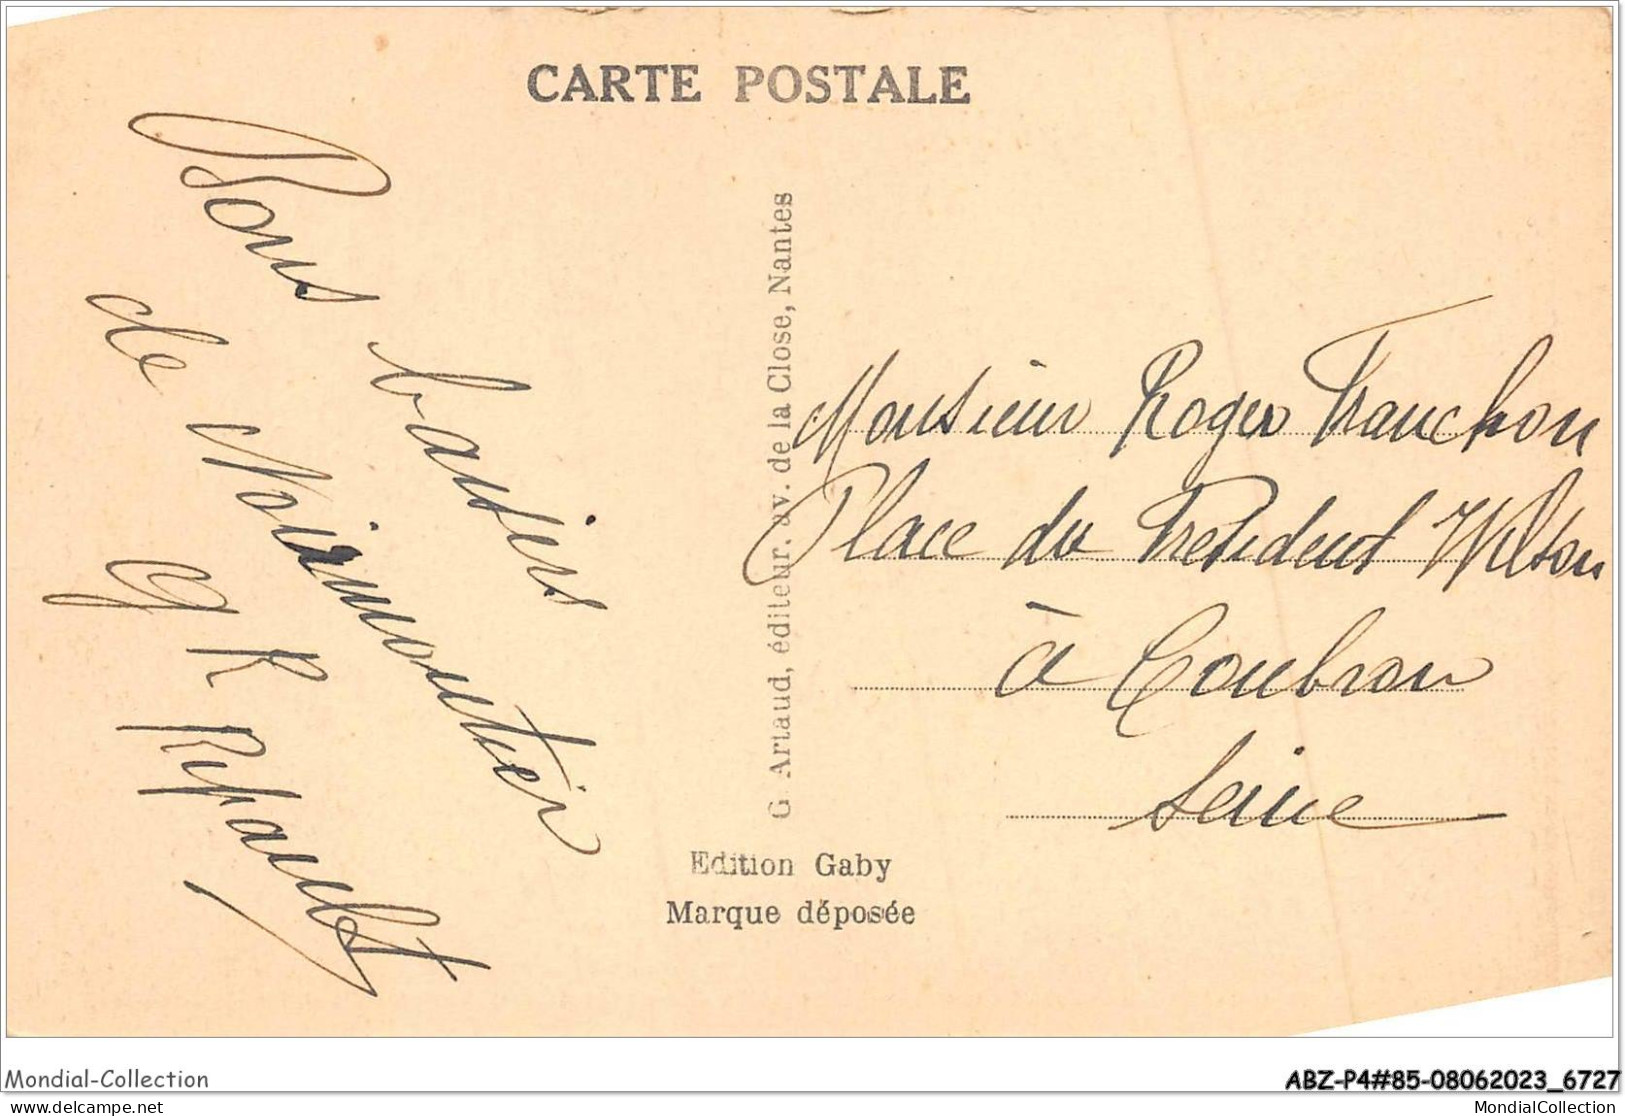 CARTE POSTALE
Bons baisers
de Noirmoutier
G. Artaud, éditeur. av. de la Close, Nantes
Monsieur Roger Franchon
Place du President Wilson
à Coubron
Seine
Edition Gaby
Marque déposée
Mondial-Collection
ABZ-P4#85-08062023_6727
delcampe.net
MondialCollection